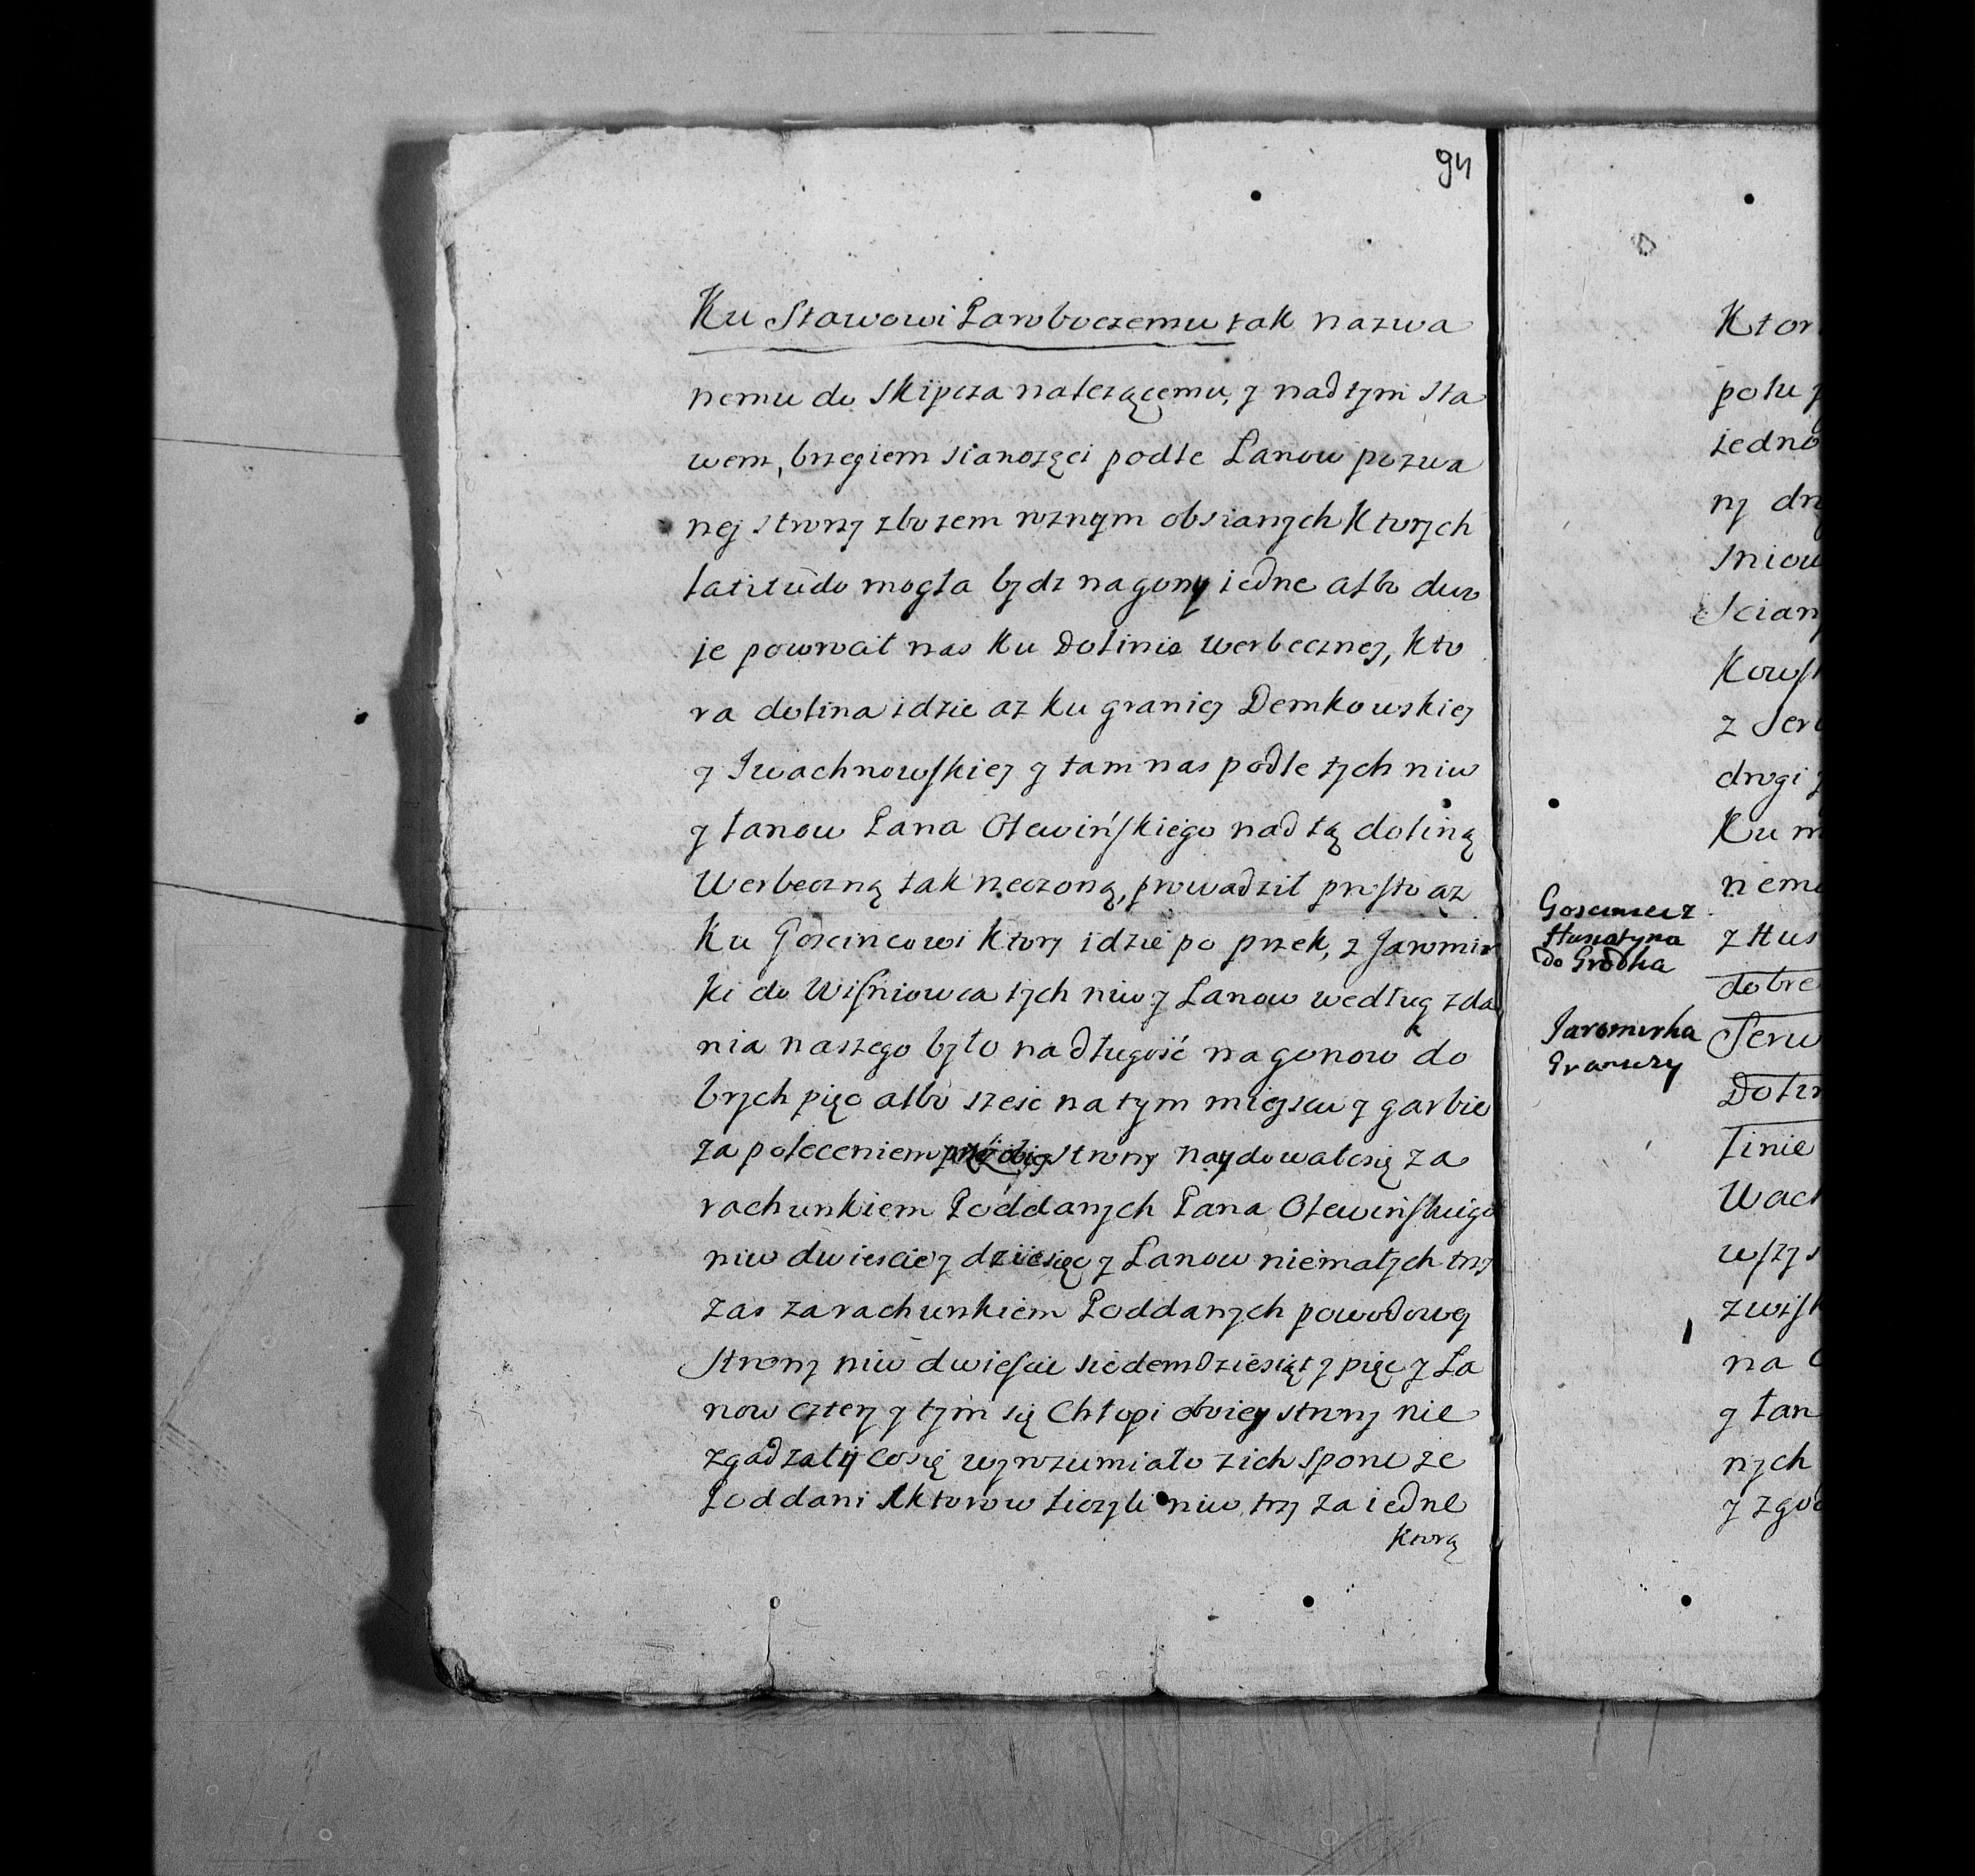 94
Ku Stawowi Paroboczemu tak nazwa
nemu do Skipcza nalezącemu, y nad tym Sta
wem, brzegiem sianozęci podle Łanow pozwa
nej strony zbozem roznym obsianych Ktorych
latitudo mogła bydz na gony iedne albo dwo
je powrocił nas Ku Dolinie Werbecznej, Kto
ra dolina idzie az Ku granicy Demkowskiej
y Iwachnowskiej y tam nas podle tych niw
y łanow Pana Olewińskiego nad tą doliną
Werbeczną tak rzeczoną, prowadził prosto az
Ku Goscincowi Ktory idzie po przek, z Jaromir
ki do Wisniowca tych niw y Łanow według zda
nia naszego było na długość na gonow do
brych pięc albo szesc na tym miejscu y garbie
za poleceniem strony naydowało się za
rachunkiem Poddanych Pana Olewinskiego
niw dwiescie y dziesięc y Łanow niemałych trzy
zas za rachunkiem Poddanych powodowey
Strony niw dwiescie siedemdziesiąt y pięc y Ła
now cztery y tym się Chłopi oboiey strony nie
zgadzały co się wyrozumiało z ich sporu ze
Poddani Aktorow liczyli niw trzy za iedne
Ktorą
Gosciniec z
Husiatyna
do Grodka
Jaromirka
Granicy
Ktor
polu y
iedno
ny dr
sniow
Scian
Kows
z Ser
drogi y
Ku m
nemu
z Hus
dobre
Serw
Dolin
linie
Wach
wszys
zwisk
na
y łan
nych
y zgod